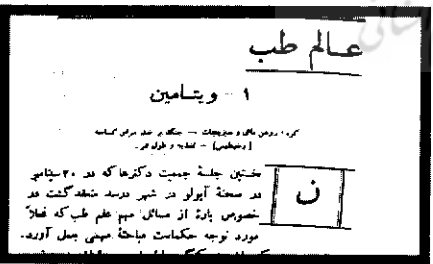 عالم طب
۱ - ویتامین
کره، روغن ماهی و سبزیجات — جنگ بر ضد مرض
[رشیتیسم] — تغذیه و طول عمر.
نخستین جلسهٔ جمعیت دکترها که در ۲۰ سپتامبر
در صحنهٔ آپولو در شهر درسد منعقد گشت در
خصوص پارهٔ از مسائل مهم علم طب که فعلاً
مورد توجه حکماست مباحثهٔ مهمی بعمل آورد.